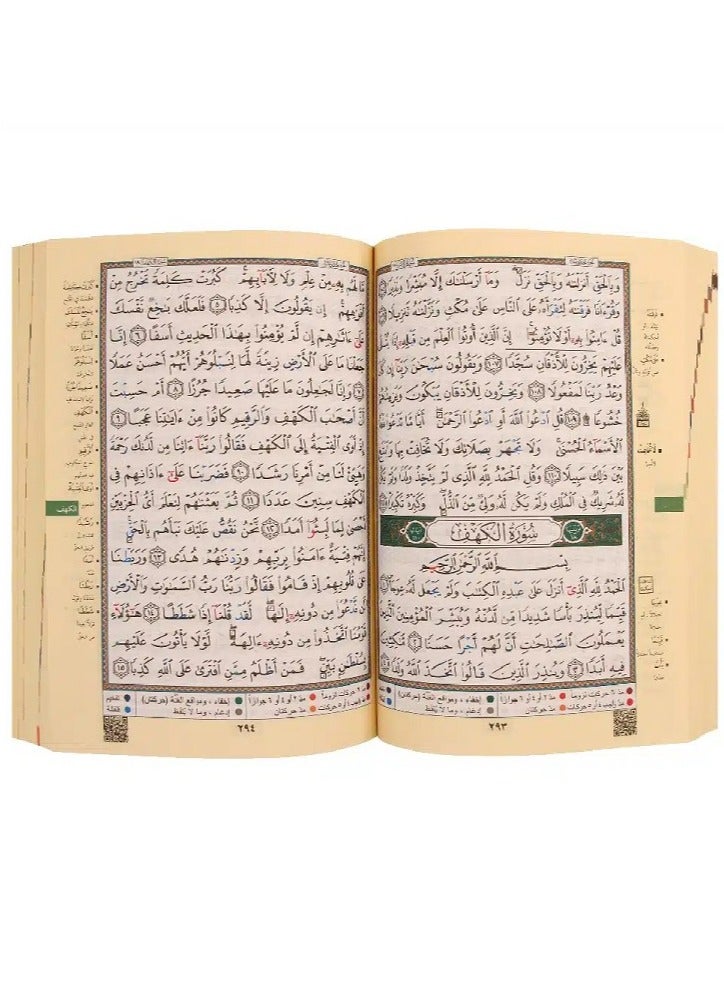 وَبِالْحَقِّ أَنزَلْنَاهُ وَبِالْحَقِّ نَزَلَ ۗ وَمَا أَرْسَلْنَاكَ إِلَّا مُبَشِّرًا وَنَذِيرًا
وَقُرْآنًا فَرَقْنَاهُ لِتَقْرَأَهُ عَلَى النَّاسِ عَلَىٰ مُكْثٍ وَنَزَّلْنَاهُ تَنزِيلًا
قُلْ ءَامِنُوا بِهِ أَوْ لَا تُؤْمِنُوا ۚ إِنَّ الَّذِينَ أُوتُوا الْعِلْمَ مِن قَبْلِهِ إِذَا يُتْلَىٰ
عَلَيْهِمْ يَخِرُّونَ لِلْأَذْقَانِ سُجَّدًا ١٠٧ وَيَقُولُونَ سُبْحَانَ رَبِّنَا إِن كَانَ
وَعْدُ رَبِّنَا لَمَفْعُولًا ١٠٨ وَيَخِرُّونَ لِلْأَذْقَانِ يَبْكُونَ وَيَزِيدُهُمْ
خُشُوعًا ١٠٩ قُلِ ادْعُوا اللَّهَ أَوِ ادْعُوا الرَّحْمَٰنَ ۖ أَيًّا مَّا تَدْعُوا فَلَهُ
الْأَسْمَاءُ الْحُسْنَىٰ ۚ وَلَا تَجْهَرْ بِصَلَاتِكَ وَلَا تُخَافِتْ بِهَا وَابْتَغِ
بَيْنَ ذَٰلِكَ سَبِيلًا ١١٠ وَقُلِ الْحَمْدُ لِلَّهِ الَّذِي لَمْ يَتَّخِذْ وَلَدًا وَلَمْ يَكُن
لَّهُ شَرِيكٌ فِي الْمُلْكِ وَلَمْ يَكُن لَّهُ وَلِيٌّ مِّنَ الذُّلِّ ۖ وَكَبِّرْهُ تَكْبِيرًا
سُورَةُ الْكَهْفِ
بِسْمِ اللَّهِ الرَّحْمَٰنِ الرَّحِيمِ
الْحَمْدُ لِلَّهِ الَّذِي أَنزَلَ عَلَىٰ عَبْدِهِ الْكِتَابَ وَلَمْ يَجْعَل لَّهُ عِوَجًا ١
قَيِّمًا لِّيُنذِرَ بَأْسًا شَدِيدًا مِّن لَّدُنْهُ وَيُبَشِّرَ الْمُؤْمِنِينَ الَّذِينَ
يَعْمَلُونَ الصَّالِحَاتِ أَنَّ لَهُمْ أَجْرًا حَسَنًا ٢ مَّاكِثِينَ
فِيهِ أَبَدًا ٣ وَيُنذِرَ الَّذِينَ قَالُوا اتَّخَذَ اللَّهُ وَلَدًا ٤
مدّ ٦ حركات لزوماً مدّ ٢ أو ٤ أو ٦ جوازاً إخفاء، ومواقع الغنّة (حركتان) تفخيم
مدّ واجب ٤ أو ٥ حركات مدّ حركتان إدغام، وما لا يُلفظ قلقلة
٢٩٣
مَّا لَهُم بِهِ مِنْ عِلْمٍ وَلَا لِآبَائِهِمْ ۚ كَبُرَتْ كَلِمَةً تَخْرُجُ مِنْ
أَفْوَاهِهِمْ ۚ إِن يَقُولُونَ إِلَّا كَذِبًا ٥ فَلَعَلَّكَ بَاخِعٌ نَّفْسَكَ
عَلَىٰ ءَاثَارِهِمْ إِن لَّمْ يُؤْمِنُوا بِهَٰذَا الْحَدِيثِ أَسَفًا ٦ إِنَّا
جَعَلْنَا مَا عَلَى الْأَرْضِ زِينَةً لَّهَا لِنَبْلُوَهُمْ أَيُّهُمْ أَحْسَنُ عَمَلًا
٧ وَإِنَّا لَجَاعِلُونَ مَا عَلَيْهَا صَعِيدًا جُرُزًا ٨ أَمْ حَسِبْتَ
أَنَّ أَصْحَابَ الْكَهْفِ وَالرَّقِيمِ كَانُوا مِنْ ءَايَاتِنَا عَجَبًا ٩
إِذْ أَوَى الْفِتْيَةُ إِلَى الْكَهْفِ فَقَالُوا رَبَّنَا ءَاتِنَا مِن لَّدُنكَ رَحْمَةً
وَهَيِّئْ لَنَا مِنْ أَمْرِنَا رَشَدًا ١٠ فَضَرَبْنَا عَلَىٰ ءَاذَانِهِمْ فِي
الْكَهْفِ سِنِينَ عَدَدًا ١١ ثُمَّ بَعَثْنَاهُمْ لِنَعْلَمَ أَيُّ الْحِزْبَيْنِ
أَحْصَىٰ لِمَا لَبِثُوا أَمَدًا ١٢ نَّحْنُ نَقُصُّ عَلَيْكَ نَبَأَهُم بِالْحَقِّ ۚ
إِنَّهُمْ فِتْيَةٌ ءَامَنُوا بِرَبِّهِمْ وَزِدْنَاهُمْ هُدًى ١٣ وَرَبَطْنَا
عَلَىٰ قُلُوبِهِمْ إِذْ قَامُوا فَقَالُوا رَبُّنَا رَبُّ السَّمَاوَاتِ وَالْأَرْضِ
لَن نَّدْعُوَ مِن دُونِهِ إِلَٰهًا ۖ لَّقَدْ قُلْنَا إِذًا شَطَطًا ١٤ هَٰؤُلَاءِ
قَوْمُنَا اتَّخَذُوا مِن دُونِهِ ءَالِهَةً ۖ لَّوْلَا يَأْتُونَ عَلَيْهِم
بِسُلْطَانٍ بَيِّنٍ ۖ فَمَنْ أَظْلَمُ مِمَّنِ افْتَرَىٰ عَلَى اللَّهِ كَذِبًا ١٥
الكهف
مدّ ٦ حركات لزوماً مدّ ٢ أو ٤ أو ٦ جوازاً إخفاء، ومواقع الغنّة (حركتان) تفخيم
مدّ واجب ٤ أو ٥ حركات مدّ حركتان إدغام، وما لا يُلفظ قلقلة
٢٩٤